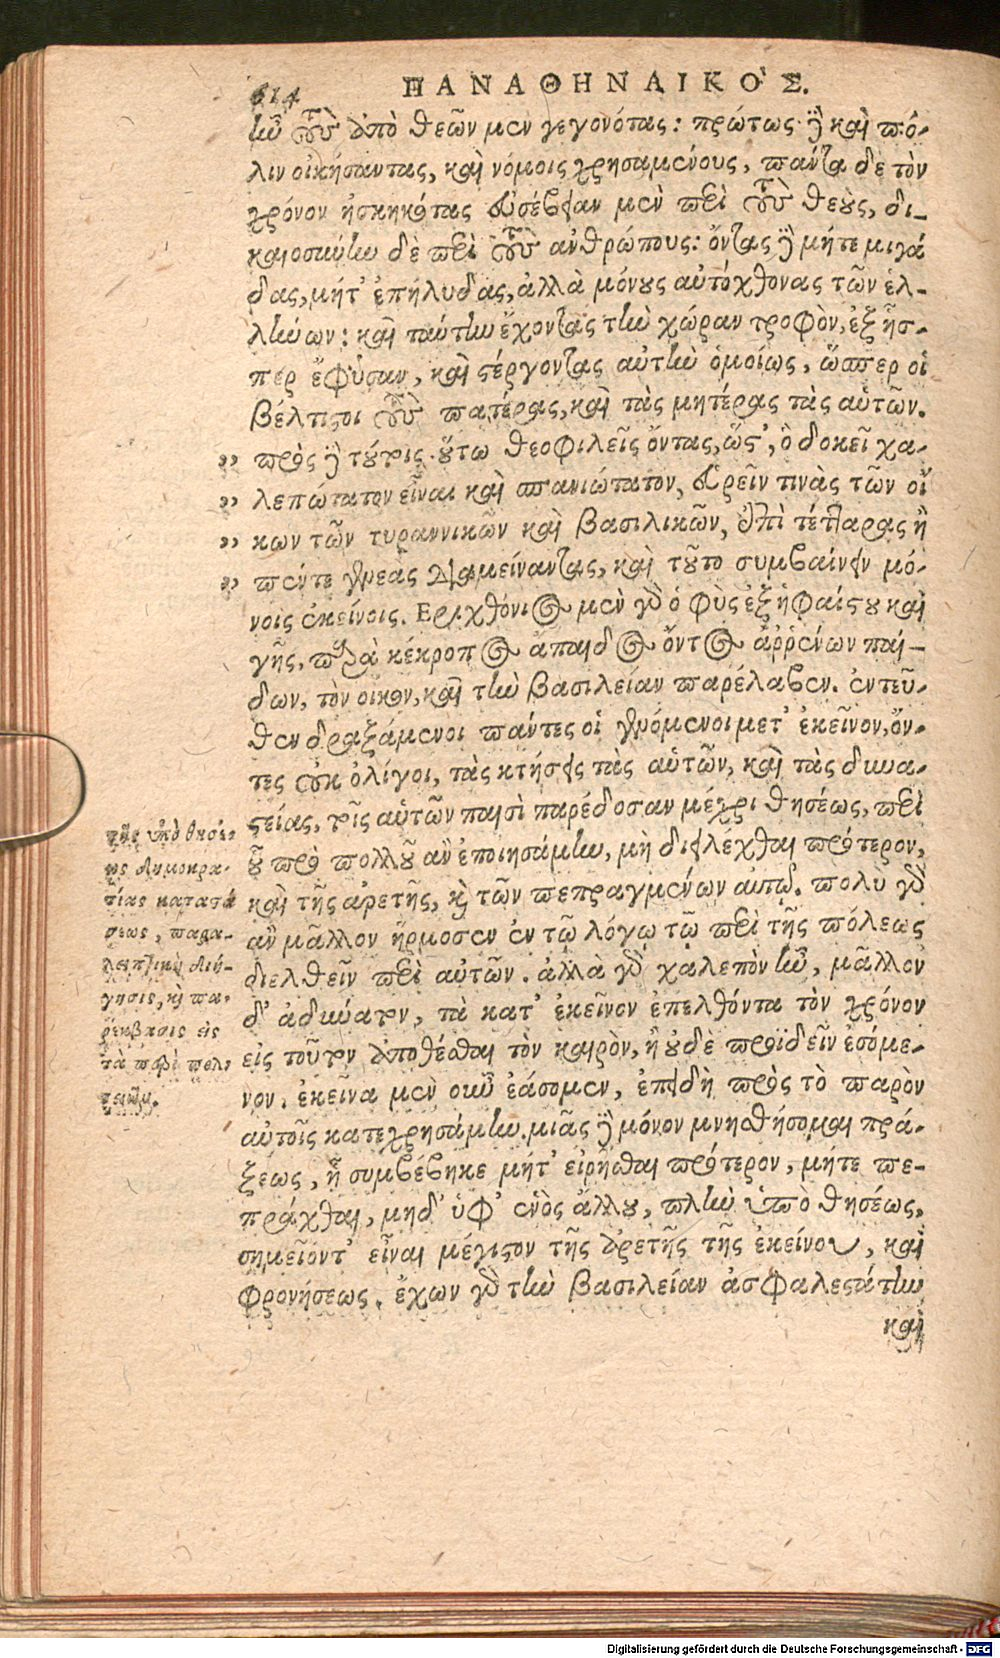 614 ΠΑΝΑΘΗΝΑΙΚΟ'Σ.
ἦν τοὺς ἀπὸ θεῶν μὲν γεγονότας: πρώτως δὲ καὶ πό-
λιν οἰκήσαντας, καὶ νόμοις χρησαμένους, πάντα δὲ τὸν
χρόνον ἠσκηκότας εὐσέβειαν μὲν περὶ τοὺς θεοὺς, δι-
καιοσύνην δὲ περὶ τοὺς ἀνθρώπους: ὄντας δὲ μήτε μιγά
δας, μήτ' ἐπήλυδας, ἀλλὰ μόνους αὐτόχθονας τῶν ἑλ-
λήνων: καὶ ταύτην ἔχοντας τὴν χώραν τροφὸν, ἐξ ἧσ-
περ ἔφυσαν, καὶ στέργοντας αὐτὴν ὁμοίως, ὥσπερ οἱ
βέλτιστοι τοὺς πατέρας, καὶ τὰς μητέρας τὰς αὑτῶν.
„ πρὸς δὲ τούτοις οὕτω θεοφιλεῖς ὄντας, ὥστ', ὃ δοκεῖ χα-
„ λεπώτατον εἶναι καὶ σπανιώτατον, εὑρεῖν τινὰς τῶν οἴ
„ κων τῶν τυραννικῶν καὶ βασιλικῶν, ἐπὶ τέτταρας ἢ
„ πέντε γενεὰς διαμείναντας, καὶ τοῦτο συμβαίνειν μό-
νοις ἐκείνοις. Εριχθόνιος μὲν γὰρ ὁ φὺς ἐξ ἡφαίστου καὶ
γῆς, παρὰ κέκροπος ἄπαιδος ὄντος ἀῤῥένων παί-
δων, τὸν οἶκον, καὶ τὴν βασιλείαν παρέλαβεν. ἐντεῦ-
θεν δ' ἀρξάμενοι πάντες οἱ γενόμενοι μετ' ἐκεῖνον, ὄν-
τες οὐκ ὀλίγοι, τὰς κτήσεις τὰς αὑτῶν, καὶ τὰς δυνα-
στείας, τοῖς αὑτῶν παισὶ παρέδοσαν μέχρι θησέως, περὶ
οὗ πρὸ πολλοῦ ἂν ἐποιησάμην, μὴ διειλέχθαι πρότερον,
καὶ τῆς ἀρετῆς, καὶ τῶν πεπραγμένων αὐτῷ. πολὺ γὰρ
ἂν μᾶλλον ἥρμοσεν ἐν τῷ λόγῳ τῷ περὶ τῆς πόλεως
διελθεῖν περὶ αὐτῶν. ἀλλὰ γὰρ χαλεπὸν ἦν, μᾶλλον
δ' ἀδύνατον, τὰ κατ' ἐκεῖνον ἐπελθόντα τὸν χρόνον
εἰς τοῦτον ἀποθέσθαι τὸν καιρὸν, ὃν οὐδὲ προῄδειν ἐσόμε-
νον. ἐκεῖνα μὲν οὖν ἐάσομεν, ἐπειδὴ πρὸς τὸ παρὸν
αὐτοῖς κατεχρησάμην. μιᾶς δὲ μόνον μνησθήσομαι πρά-
ξεως, ἣ συμβέβηκε μήτ' εἰρῆσθαι πρότερον, μήτε πε-
πρᾶχθαι, μηδ' ὑφ' ἑνὸς ἄλλου, πλὴν ὑπὸ θησέως,
σημεῖόν τ' εἶναι μέγιστον τῆς ἀρετῆς τῆς ἐκείνου, καὶ
φρονήσεως. ἔχων γὰρ τὴν βασιλείαν ἀσφαλεστάτην
καὶ
τῆς ὑπὸ θησέ-
ως δημοκρα-
τίας καταστά
σεως, παρα-
λειπτικὴ διή-
γησις, καὶ πα-
ρέκβασις εἰς
τὰ περὶ πολι-
τειῶν.
Digitalisierung gefördert durch die Deutsche Forschungsgemeinschaft - DFG